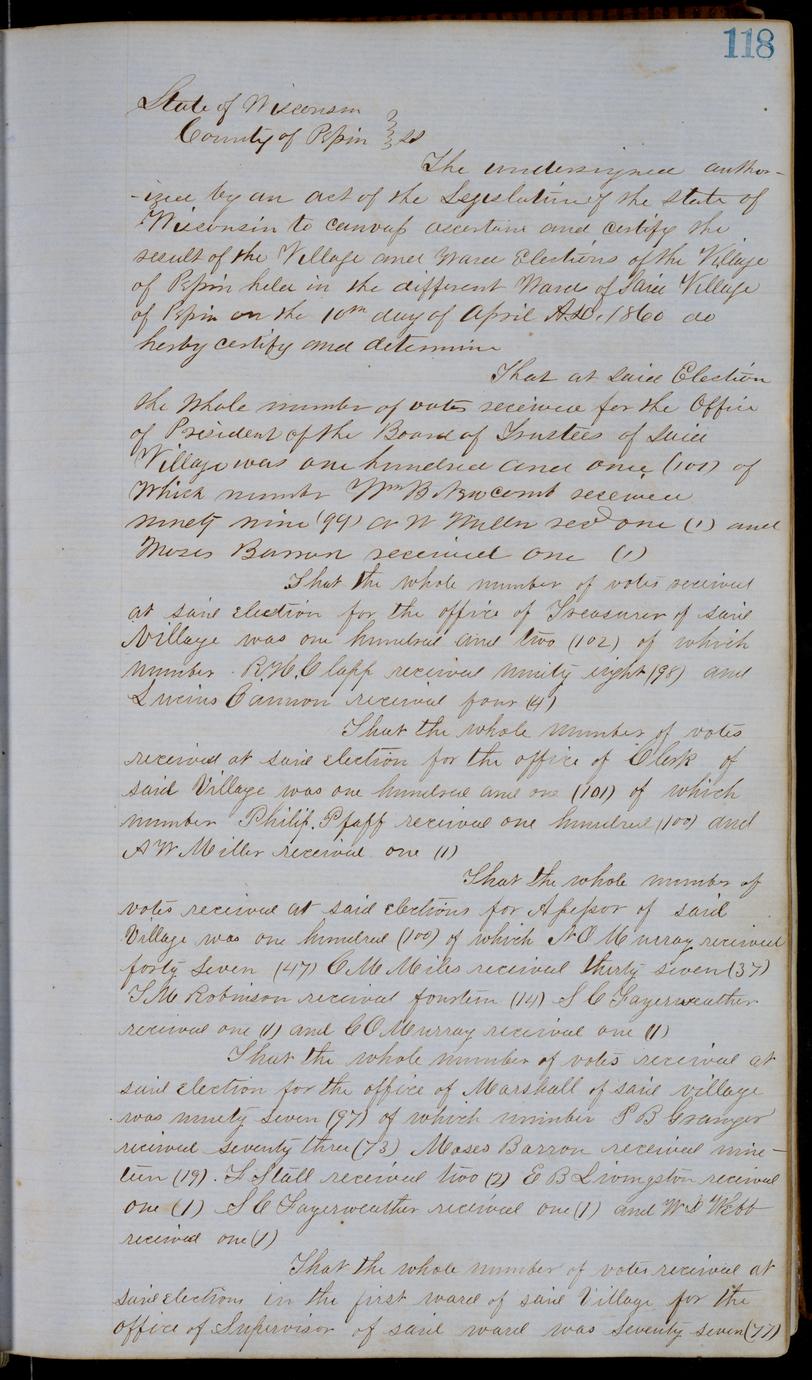 118
State of Wisconsin
County of Pepin } ss
The undersigned author-
-ized by an act of the Legislature of the state of
Wisconsin to canvass ascertain and certify the
result of the Village and Ward Elections of the Village
of Pepin held in the different Wards of Said Village
of Pepin on the 10th day of April A.D. 1860 do
herby certify and determine
That at said Election
the whole number of votes received for the Office
of President of the Board of Trustees of said
Village was one hundred and one (101) of
which number Wm B. Newcomb received
ninety nine (99) A W Miller recd one (1) and
Moses Barron received one (1)
That the whole number of votes received
at said election for the office of Treasurer of said
Village was one hundred and two (102) of which
number R. H. Clapp received ninety eight (98) and
Lucius Cannon received four (4)
That the whole number of votes
received at said election for the office of Clerk of
said Village was one hundred and one (101) of which
number Philip. Pfaff received one hundred (100) and
A W Miller received one (1)
That the whole number of
votes received at said elections for Assessor of said
Village was one hundred (100) of which N O Murray received
forty seven (47) C M Miles received thirty seven (37)
T M Robinson received fourteen (14) S C Fayerweather
received one (1) and C O Murray received one (1)
That the whole number of votes received at
said election for the office of Marshall of said village
was ninety seven (97) of which number P B Granger
received seventy three (73) Moses Barron received nine-
teen (19). F Stall received two (2) E B Livingston received
one (1) S C Fayerweather received one (1) and W D Webb
received one (1)
That the whole number of votes received at
said elections in the first ward of said Village for the
office of Supervisor of said ward was seventy seven (77)